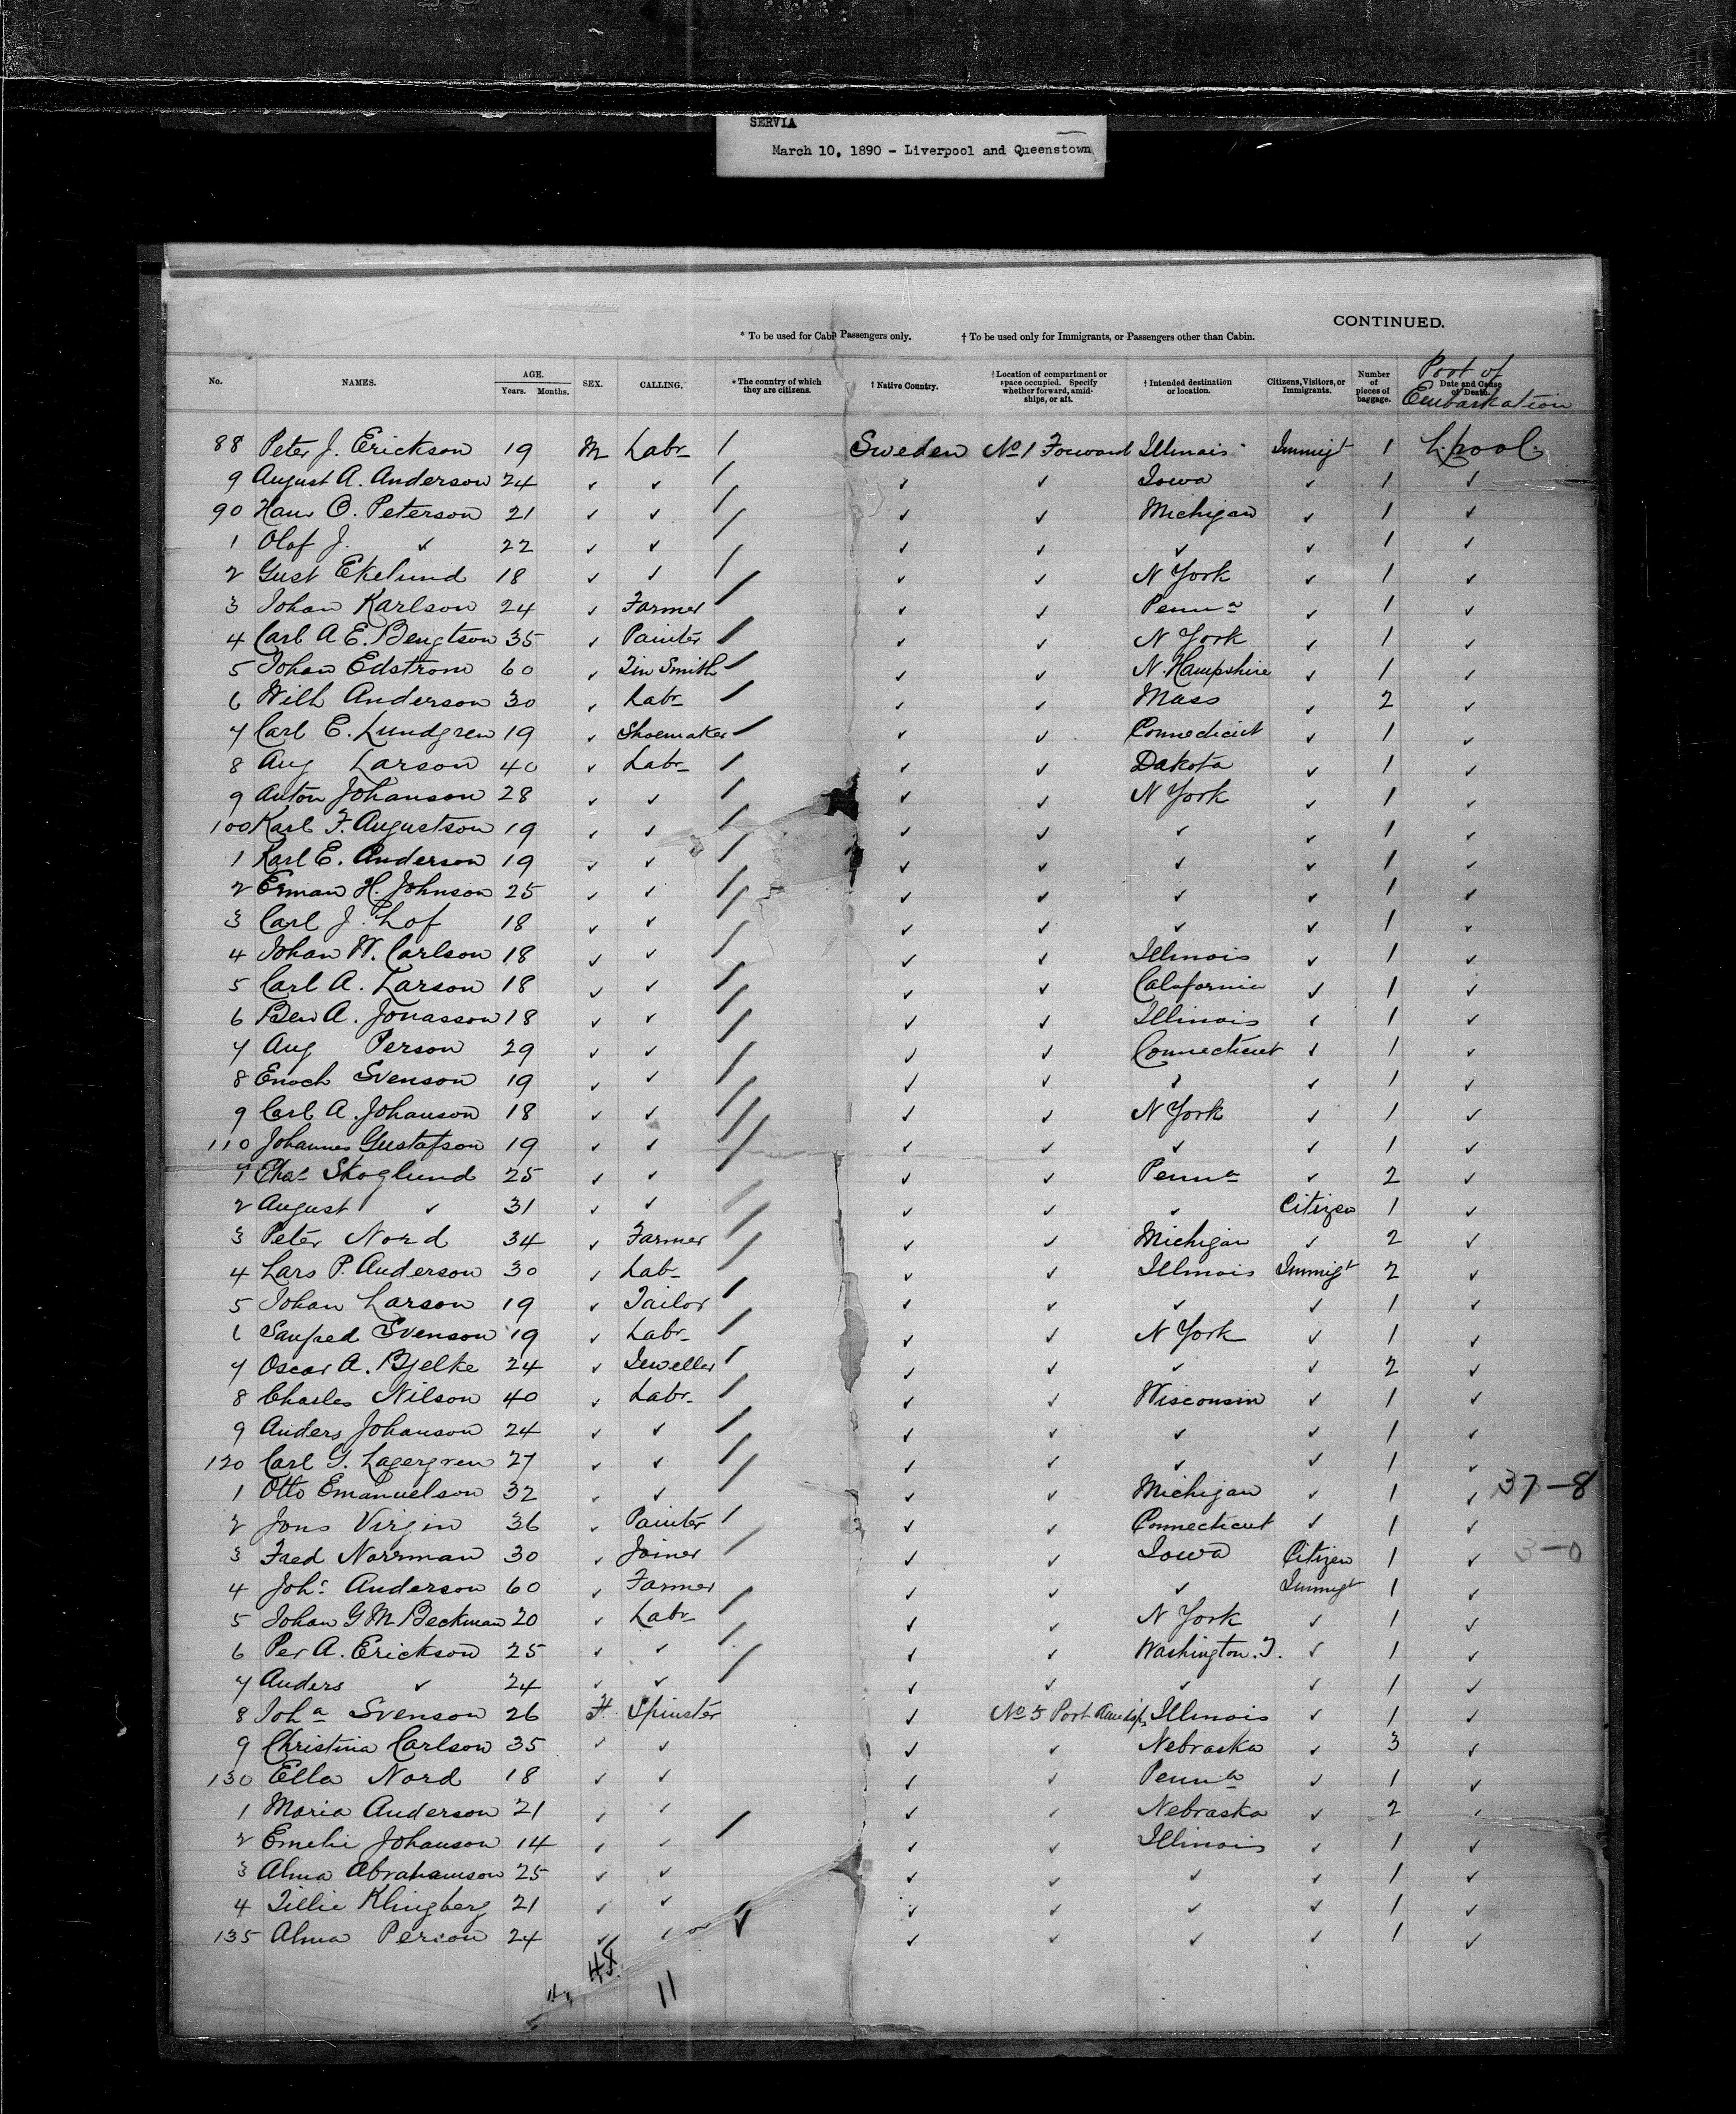 SERVIA
March 10, 1890 - Liverpool and Queenstown
CONTINUED.
* To be used for Cabin Passengers only. † To be used only for Immigrants, or Passengers other than Cabin.
No. NAMES. AGE. Years. Months. SEX. CALLING. * The country of which they are citizens. † Native Country. † Location of compartment or space occupied. Specify whether forward, amidships, or aft. † Intended destination or location. Citizens, Visitors, or Immigrants. Number of pieces of baggage. Date and Cause of Death. Port of Embarkation
88 Peter J. Erickson 19 M Labr / Sweden No 1 Forward Illinois Immigt 1 L.pool
9 August A. Anderson 24 ✓ ✓ / ✓ ✓ Iowa ✓ 1 ✓
90 Hans O. Peterson 21 ✓ ✓ / ✓ ✓ Michigan ✓ 1 ✓
1 Olof J. ✓ 22 ✓ ✓ / ✓ ✓ ✓ ✓ 1 ✓
2 Gust Ekelund 18 ✓ ✓ / ✓ ✓ N York ✓ 1 ✓
3 Johan Karlson 24 ✓ Farmer / ✓ ✓ Penna ✓ 1 ✓
4 Carl A E. Bengtson 35 ✓ Painter / ✓ ✓ N York ✓ 1 ✓
5 Johan Edstrom 60 ✓ Tin Smith / ✓ ✓ N. Hampshire ✓ 1 ✓
6 Wilh Anderson 30 ✓ Labr / ✓ ✓ Mass ✓ 2 ✓
7 Carl E. Lundgren 19 ✓ Shoemaker / ✓ ✓ Connecticut ✓ 1 ✓
8 Aug Larson 40 ✓ Labr / ✓ ✓ Dakota ✓ 1 ✓
9 Anton Johanson 28 ✓ ✓ / ✓ ✓ N York ✓ 1 ✓
100 Karl F. Augustson 19 ✓ ✓ / ✓ ✓ ✓ ✓ 1 ✓
1 Karl E. Anderson 19 ✓ ✓ / ✓ ✓ ✓ ✓ 1 ✓
2 Erman H. Johnson 25 ✓ ✓ / ✓ ✓ ✓ ✓ 1 ✓
3 Carl J. Lof 18 ✓ ✓ / ✓ ✓ ✓ ✓ 1 ✓
4 Johan W. Carlson 18 ✓ ✓ / ✓ ✓ Illinois ✓ 1 ✓
5 Carl A. Larson 18 ✓ ✓ / ✓ ✓ California ✓ 1 ✓
6 Ben A. Jonasson 18 ✓ ✓ / ✓ ✓ Illinois ✓ 1 ✓
7 Aug Person 29 ✓ ✓ / ✓ ✓ Connecticut ✓ 1 ✓
8 Enoch Svenson 19 ✓ ✓ / ✓ ✓ ✓ ✓ 1 ✓
9 Carl A. Johanson 18 ✓ ✓ / ✓ ✓ N York ✓ 1 ✓
110 Johannes Gustafson 19 ✓ ✓ / ✓ ✓ ✓ ✓ 1 ✓
1 Chas Skoglund 25 ✓ ✓ / ✓ ✓ Penna ✓ 2 ✓
2 August ✓ 31 ✓ ✓ / ✓ ✓ ✓ Citizen 1 ✓
3 Peter Nord 34 ✓ Farmer / ✓ ✓ Michigan ✓ 2 ✓
4 Lars P. Anderson 30 ✓ Labr / ✓ ✓ Illinois Immigt 2 ✓
5 Johan Larson 19 ✓ Tailor / ✓ ✓ ✓ ✓ 1 ✓
6 Sanfred Svenson 19 ✓ Labr / ✓ ✓ N York ✓ 1 ✓
7 Oscar A. Bjelke 24 ✓ Jeweller / ✓ ✓ ✓ ✓ 2 ✓
8 Charles Nilson 40 ✓ Labr / ✓ ✓ Wisconsin ✓ 1 ✓
9 Anders Johanson 24 ✓ ✓ / ✓ ✓ ✓ ✓ 1 ✓
120 Carl G. Lagergren 27 ✓ ✓ / ✓ ✓ ✓ ✓ 1 ✓
1 Otto Emanuelson 32 ✓ ✓ / ✓ ✓ Michigan ✓ 1 ✓ 37-8
2 Jons Virgin 36 ✓ Painter / ✓ ✓ Connecticut ✓ 1 ✓
3 Fred Norrman 30 ✓ Joiner / ✓ ✓ Iowa Citizen 1 ✓ 3-0
4 Johs Anderson 60 ✓ Farmer ✓ ✓ ✓ Immigt 1 ✓
5 Johan G M Beckman 20 ✓ Labr / ✓ ✓ N York ✓ 1 ✓
6 Per A. Erickson 25 ✓ ✓ / ✓ ✓ Washington. T. ✓ 1 ✓
7 Anders ✓ 24 ✓ ✓ / ✓ ✓ ✓ ✓ 1 ✓
8 Joha Svenson 26 F. Spinster ✓ No 5 Port Amidsps Illinois ✓ 1 ✓
9 Christina Carlson 35 ✓ ✓ ✓ ✓ Nebraska ✓ 3 ✓
130 Ella Nord 18 ✓ ✓ ✓ ✓ Penna ✓ 1 ✓
1 Maria Anderson 21 ✓ ✓ ✓ ✓ Nebraska ✓ 2 ✓
2 Emelie Johanson 14 ✓ ✓ / ✓ ✓ Illinois ✓ 1 ✓
3 Alma Abrahamson 25 ✓ ✓ ✓ ✓ ✓ ✓ 1 ✓
4 Tillie Klingberg 21 ✓ ✓ ✓ ✓ ✓ ✓ 1 ✓
135 Alma Person 24 ✓ ✓ ✓ ✓ ✓ ✓ ✓ 1 ✓
11